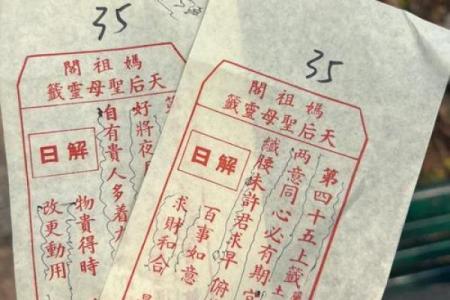 35
媽祖閣
天后聖母靈籤
好將夜
自有貴人多着
解曰
物貴得時
改更動用
35
媽祖閣
天后聖母靈籤
第四十五上籤
兩意同心必有期
纖腰未許君求早
解曰
百事如意
求財和合